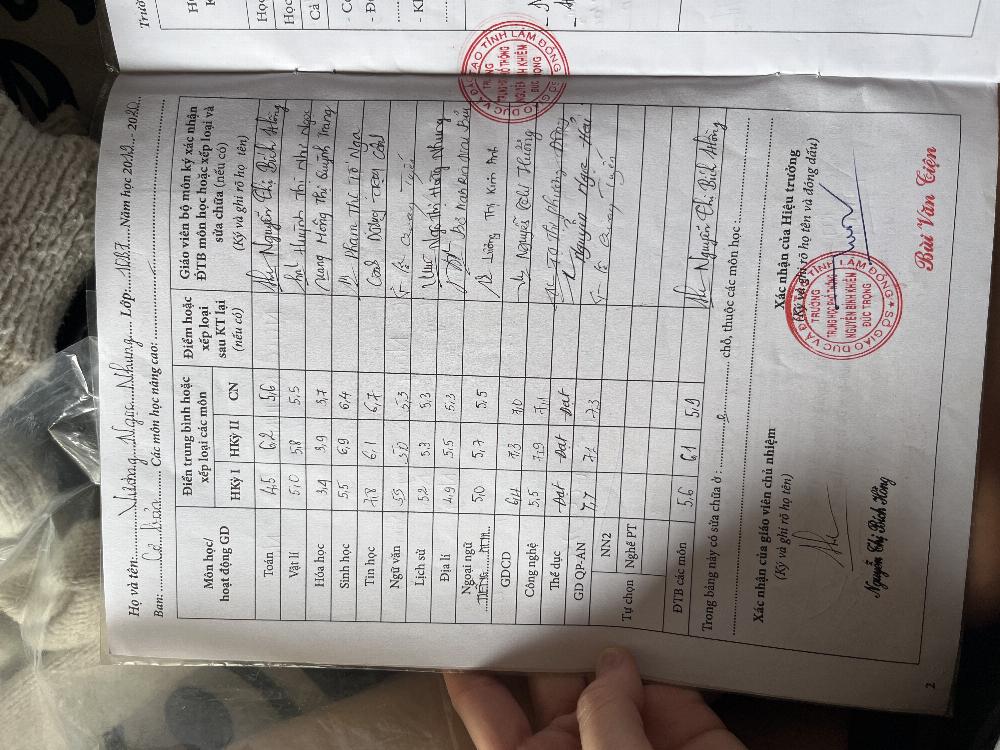 Họ và tên: Lương Ngọc Nhung Lớp: Năm học 2019 - 2020
Ban: Cơ bản Các môn học nâng cao:
Môn học/ hoạt động GD
Điểm trung bình hoặc xếp loại các môn
Điểm hoặc xếp loại sau KT lại (nếu có)
Giáo viên bộ môn ký xác nhận ĐTB môn học hoặc xếp loại và sửa chữa (nếu có)
(Ký và ghi rõ họ tên)
HKỳ I HKỳ II CN
Toán 4,5 6,2 5,6 Nguyễn Thị Bích Hồng
Vật lí 5,0 5,8 5,5 Huỳnh Thị Như Ngọc
Hóa học 3,4 3,9 3,7 Hồng Thị Quỳnh Trang
Sinh học 5,5 6,9 6,4 Phạm Thị Tố Nga
Tin học 7,8 6,1 6,7
Ngữ văn 5,3
Lịch sử 5,2 5,3 5,3 Ngô Thị Hồng Nhung
Địa lí 4,9 5,5 5,3
Ngoại ngữ 5,0 5,7 5,5 Lương Thị Kim Anh
GDCD 6,4 7,3 7,0 Nguyễn Chí Hướng
Công nghệ 5,5 7,9 7,1
Thể dục Đạt Đạt Đạt Nguyễn Ngọc
GD QP-AN 7,7 7,3
Tự chọn NN2
Nghề PT
ĐTB các môn 5,6 6,1 5,9 Nguyễn Thị Bích Hồng
Trong bảng này có sửa chữa ở: chỗ, thuộc các môn học:
Xác nhận của giáo viên chủ nhiệm
(Ký và ghi rõ họ tên)
Nguyễn Thị Bích Hồng
Xác nhận của Hiệu trưởng
(Ký và ghi rõ họ tên và đóng dấu)
SỞ GIÁO DỤC VÀ ĐÀO TẠO TỈNH LÂM ĐỒNG
TRƯỜNG
TRUNG HỌC PHỔ THÔNG
NGUYỄN BỈNH KHIÊM
ĐỨC TRỌNG
Bùi Văn Tiện
2